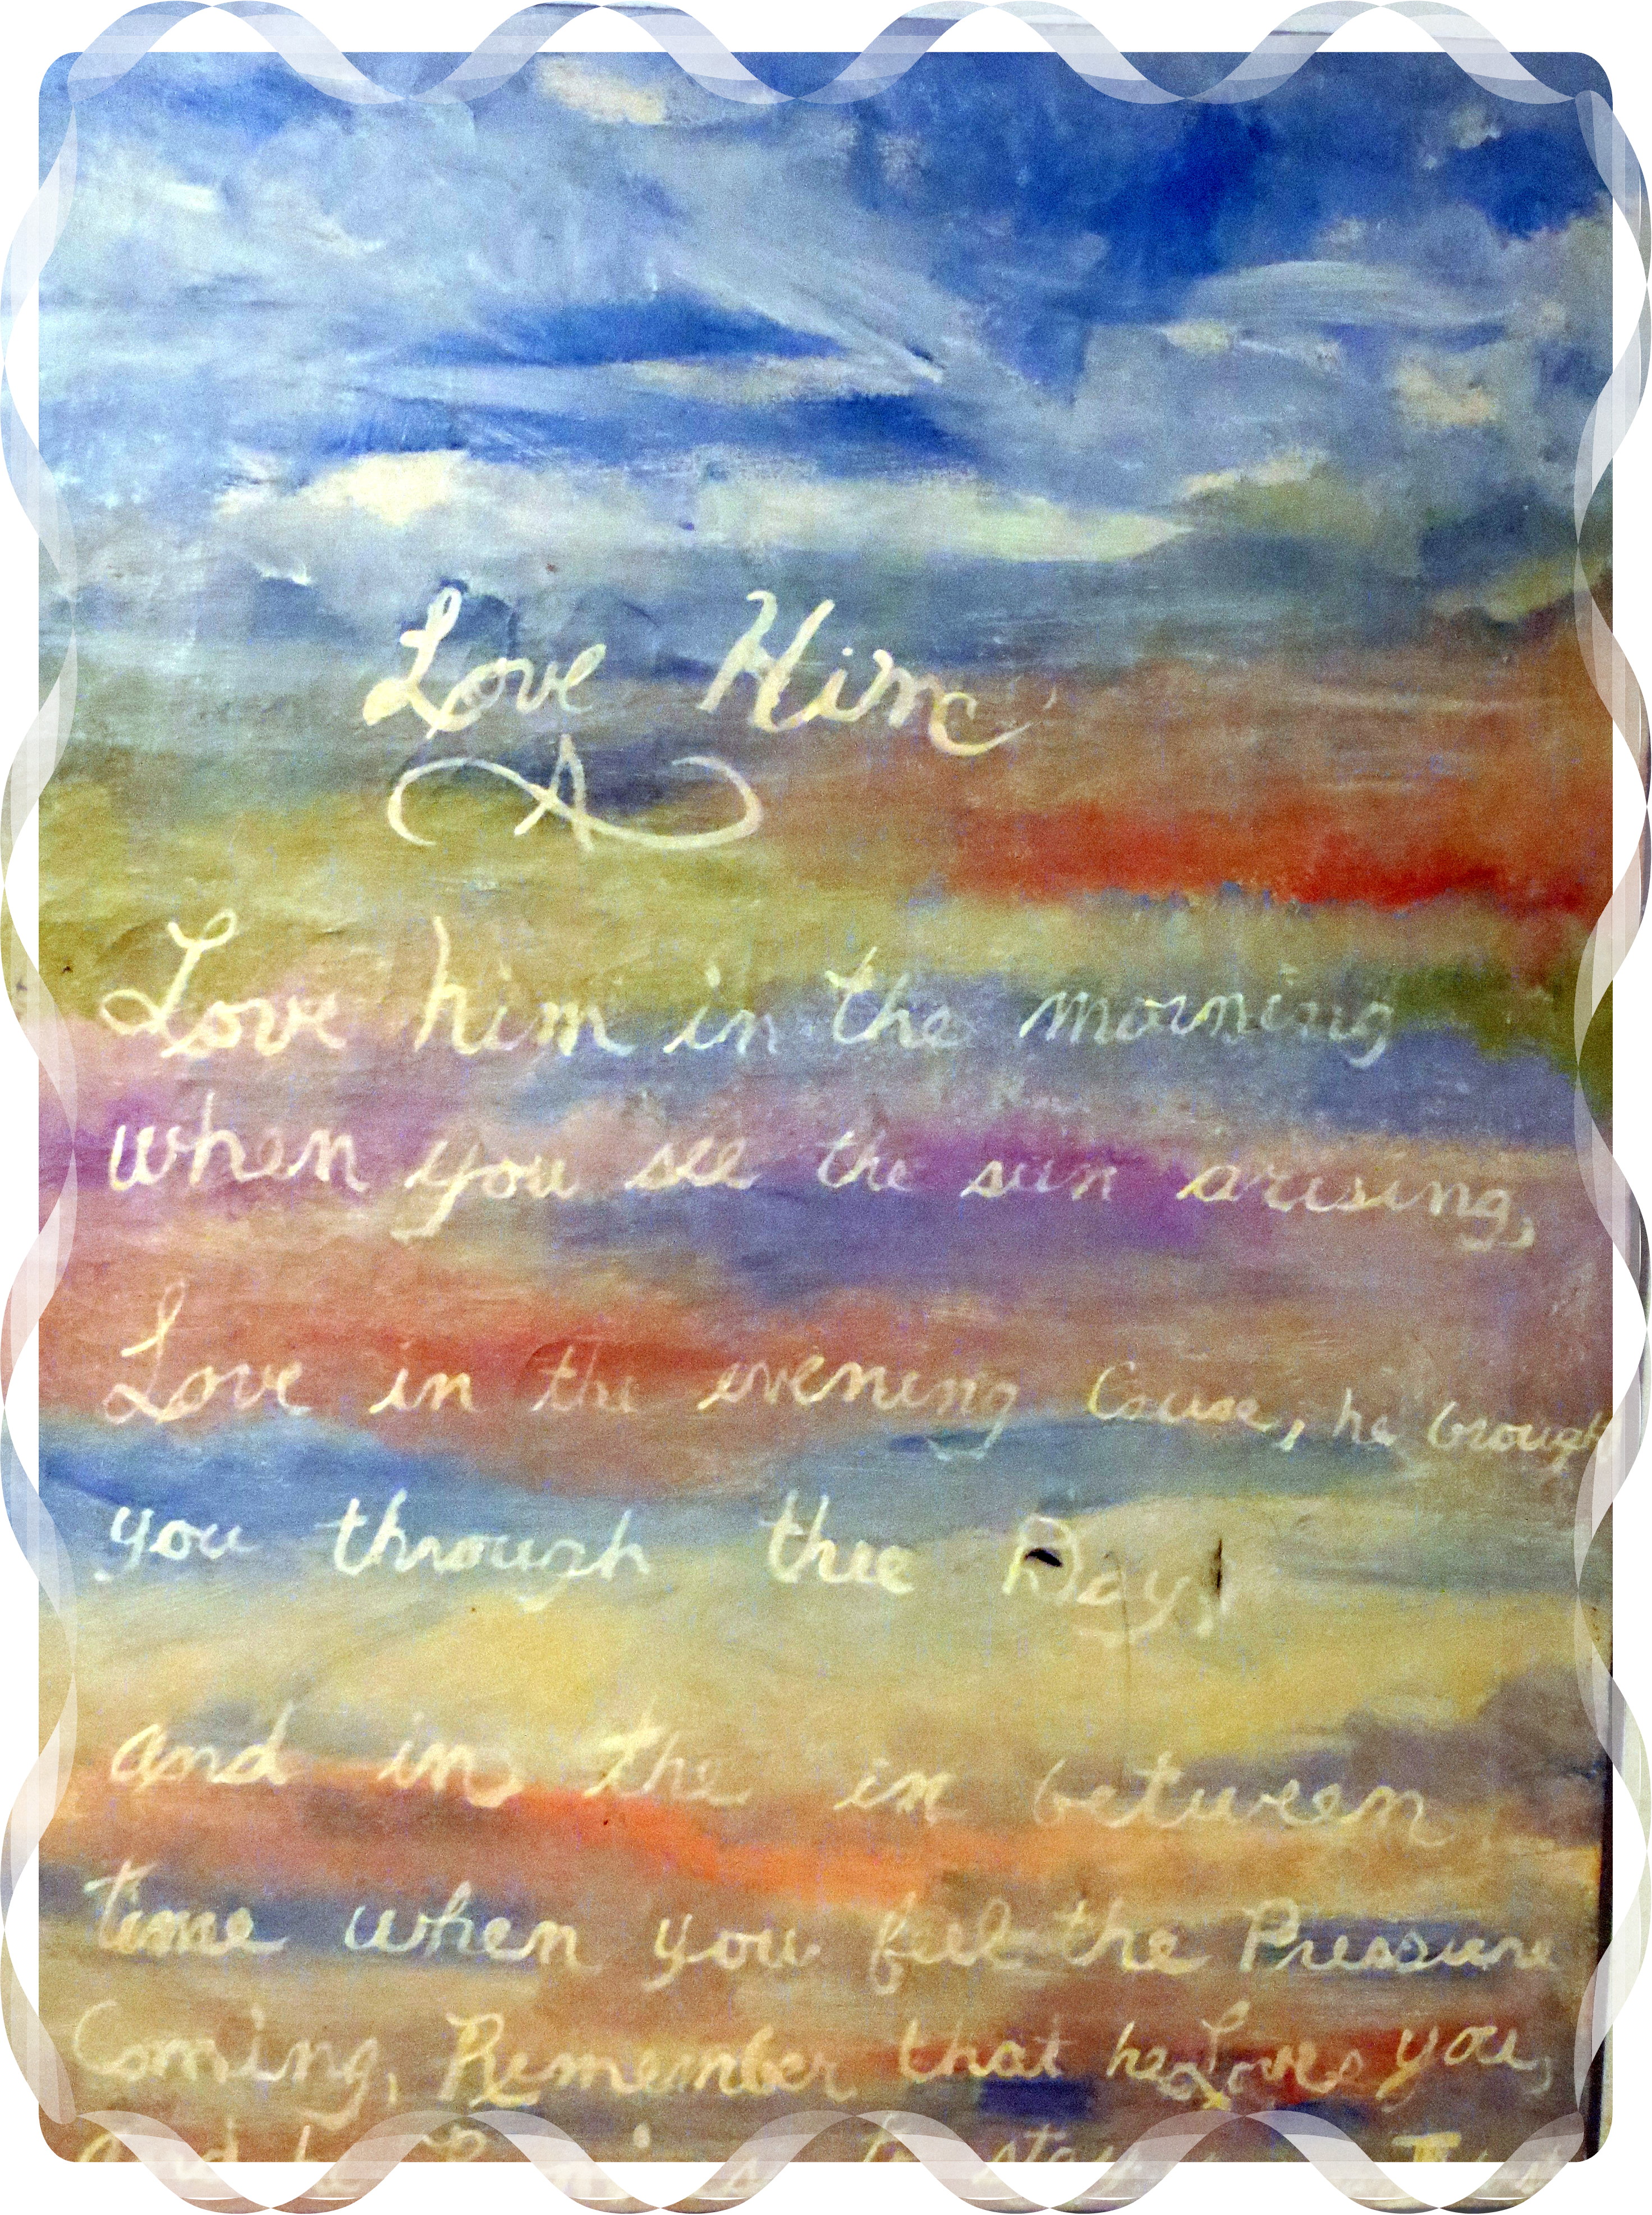 Love Him
Love him in the morning
when you see the sun arising,
Love in the evening Cause, he brough
you through thee Day,
and in the in between
time when you feel the Pressure
Coming, Remember that he Loves you,
and to stay